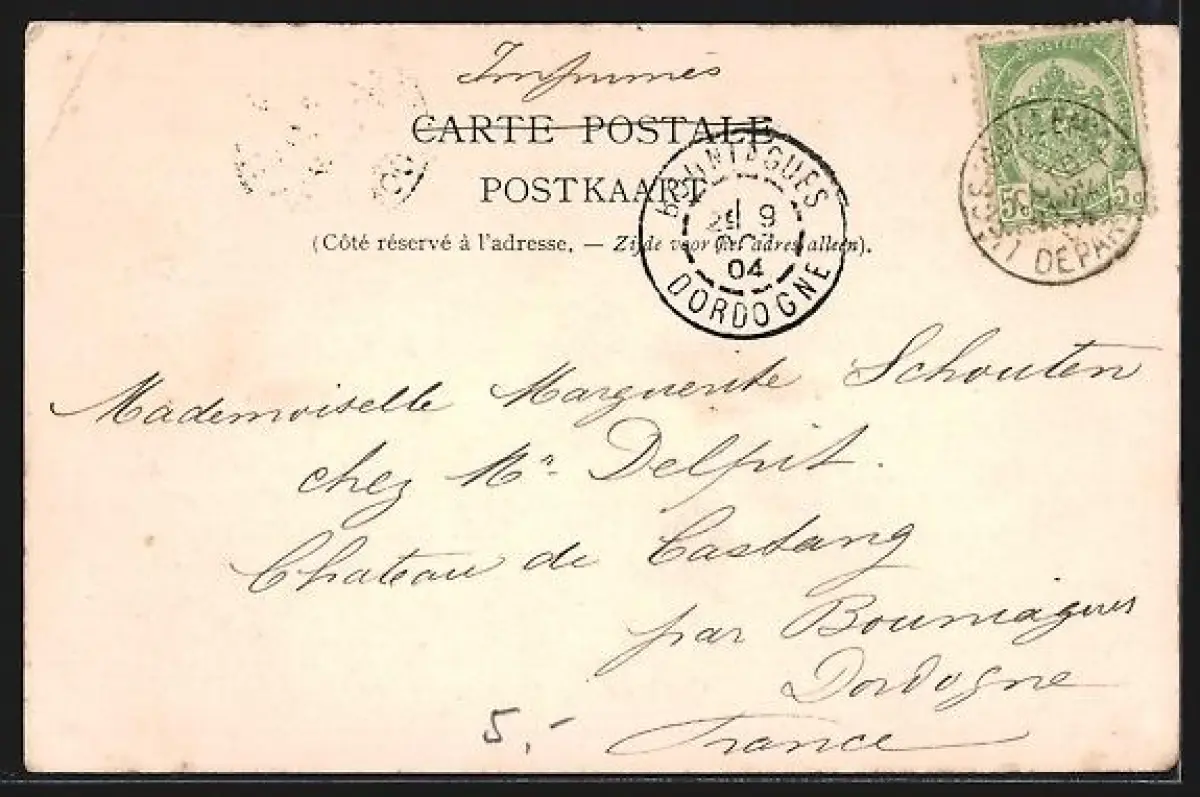 Imprimés
CARTE POSTALE
POSTKAART
(Côté réservé à l'adresse. — Zijde voor het adres alleen).
BOUNIAGUES
29 9
04
DORDOGNE
5c 5c
DEPART
Mademoiselle Marguerite Schouten
chez Mr. Delpit.
Chateau de Castang
par Bouniagues
Dordogne
France
5,-